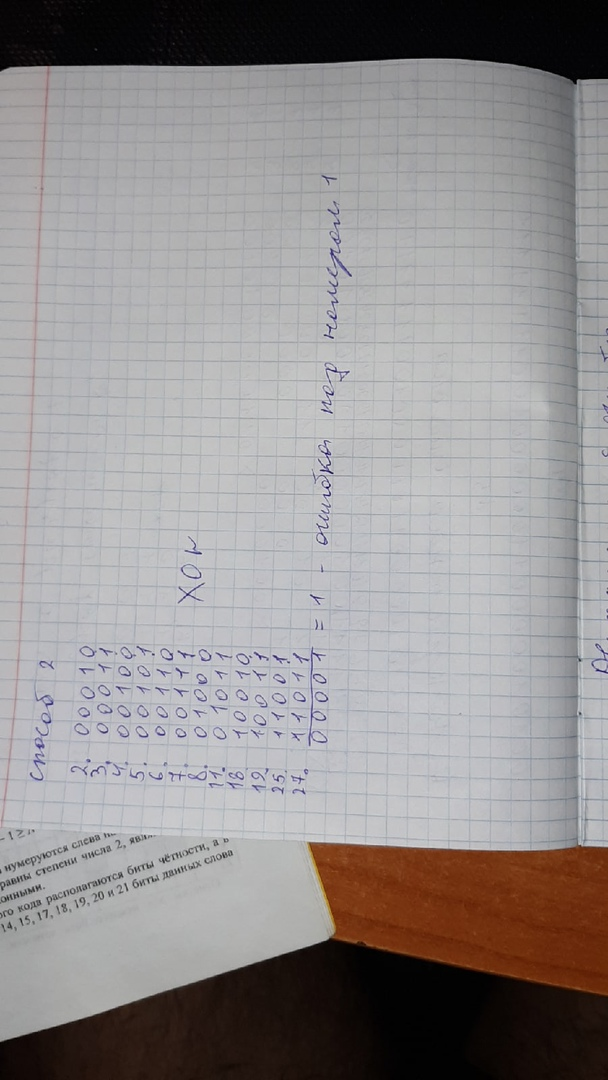 Способ 2
2. 0 0 0 1 0
3. 0 0 0 1 1
4. 0 0 1 0 0
5. 0 0 1 0 1
6. 0 0 1 1 0
7. 0 0 1 1 1
8. 0 1 0 0 0
11. 0 1 0 1 1
18. 1 0 0 1 0
19. 1 0 0 1 1
25. 1 1 0 0 1
27. 1 1 0 1 1
XOR
0 0 0 0 1 = 1 - ошибка под номером 1
нумеруются слева
равны степени числа 2,
онными.
ого кода располагаются биты чётности, а в
14, 15, 17, 18, 19, 20 и 21 биты данных слова